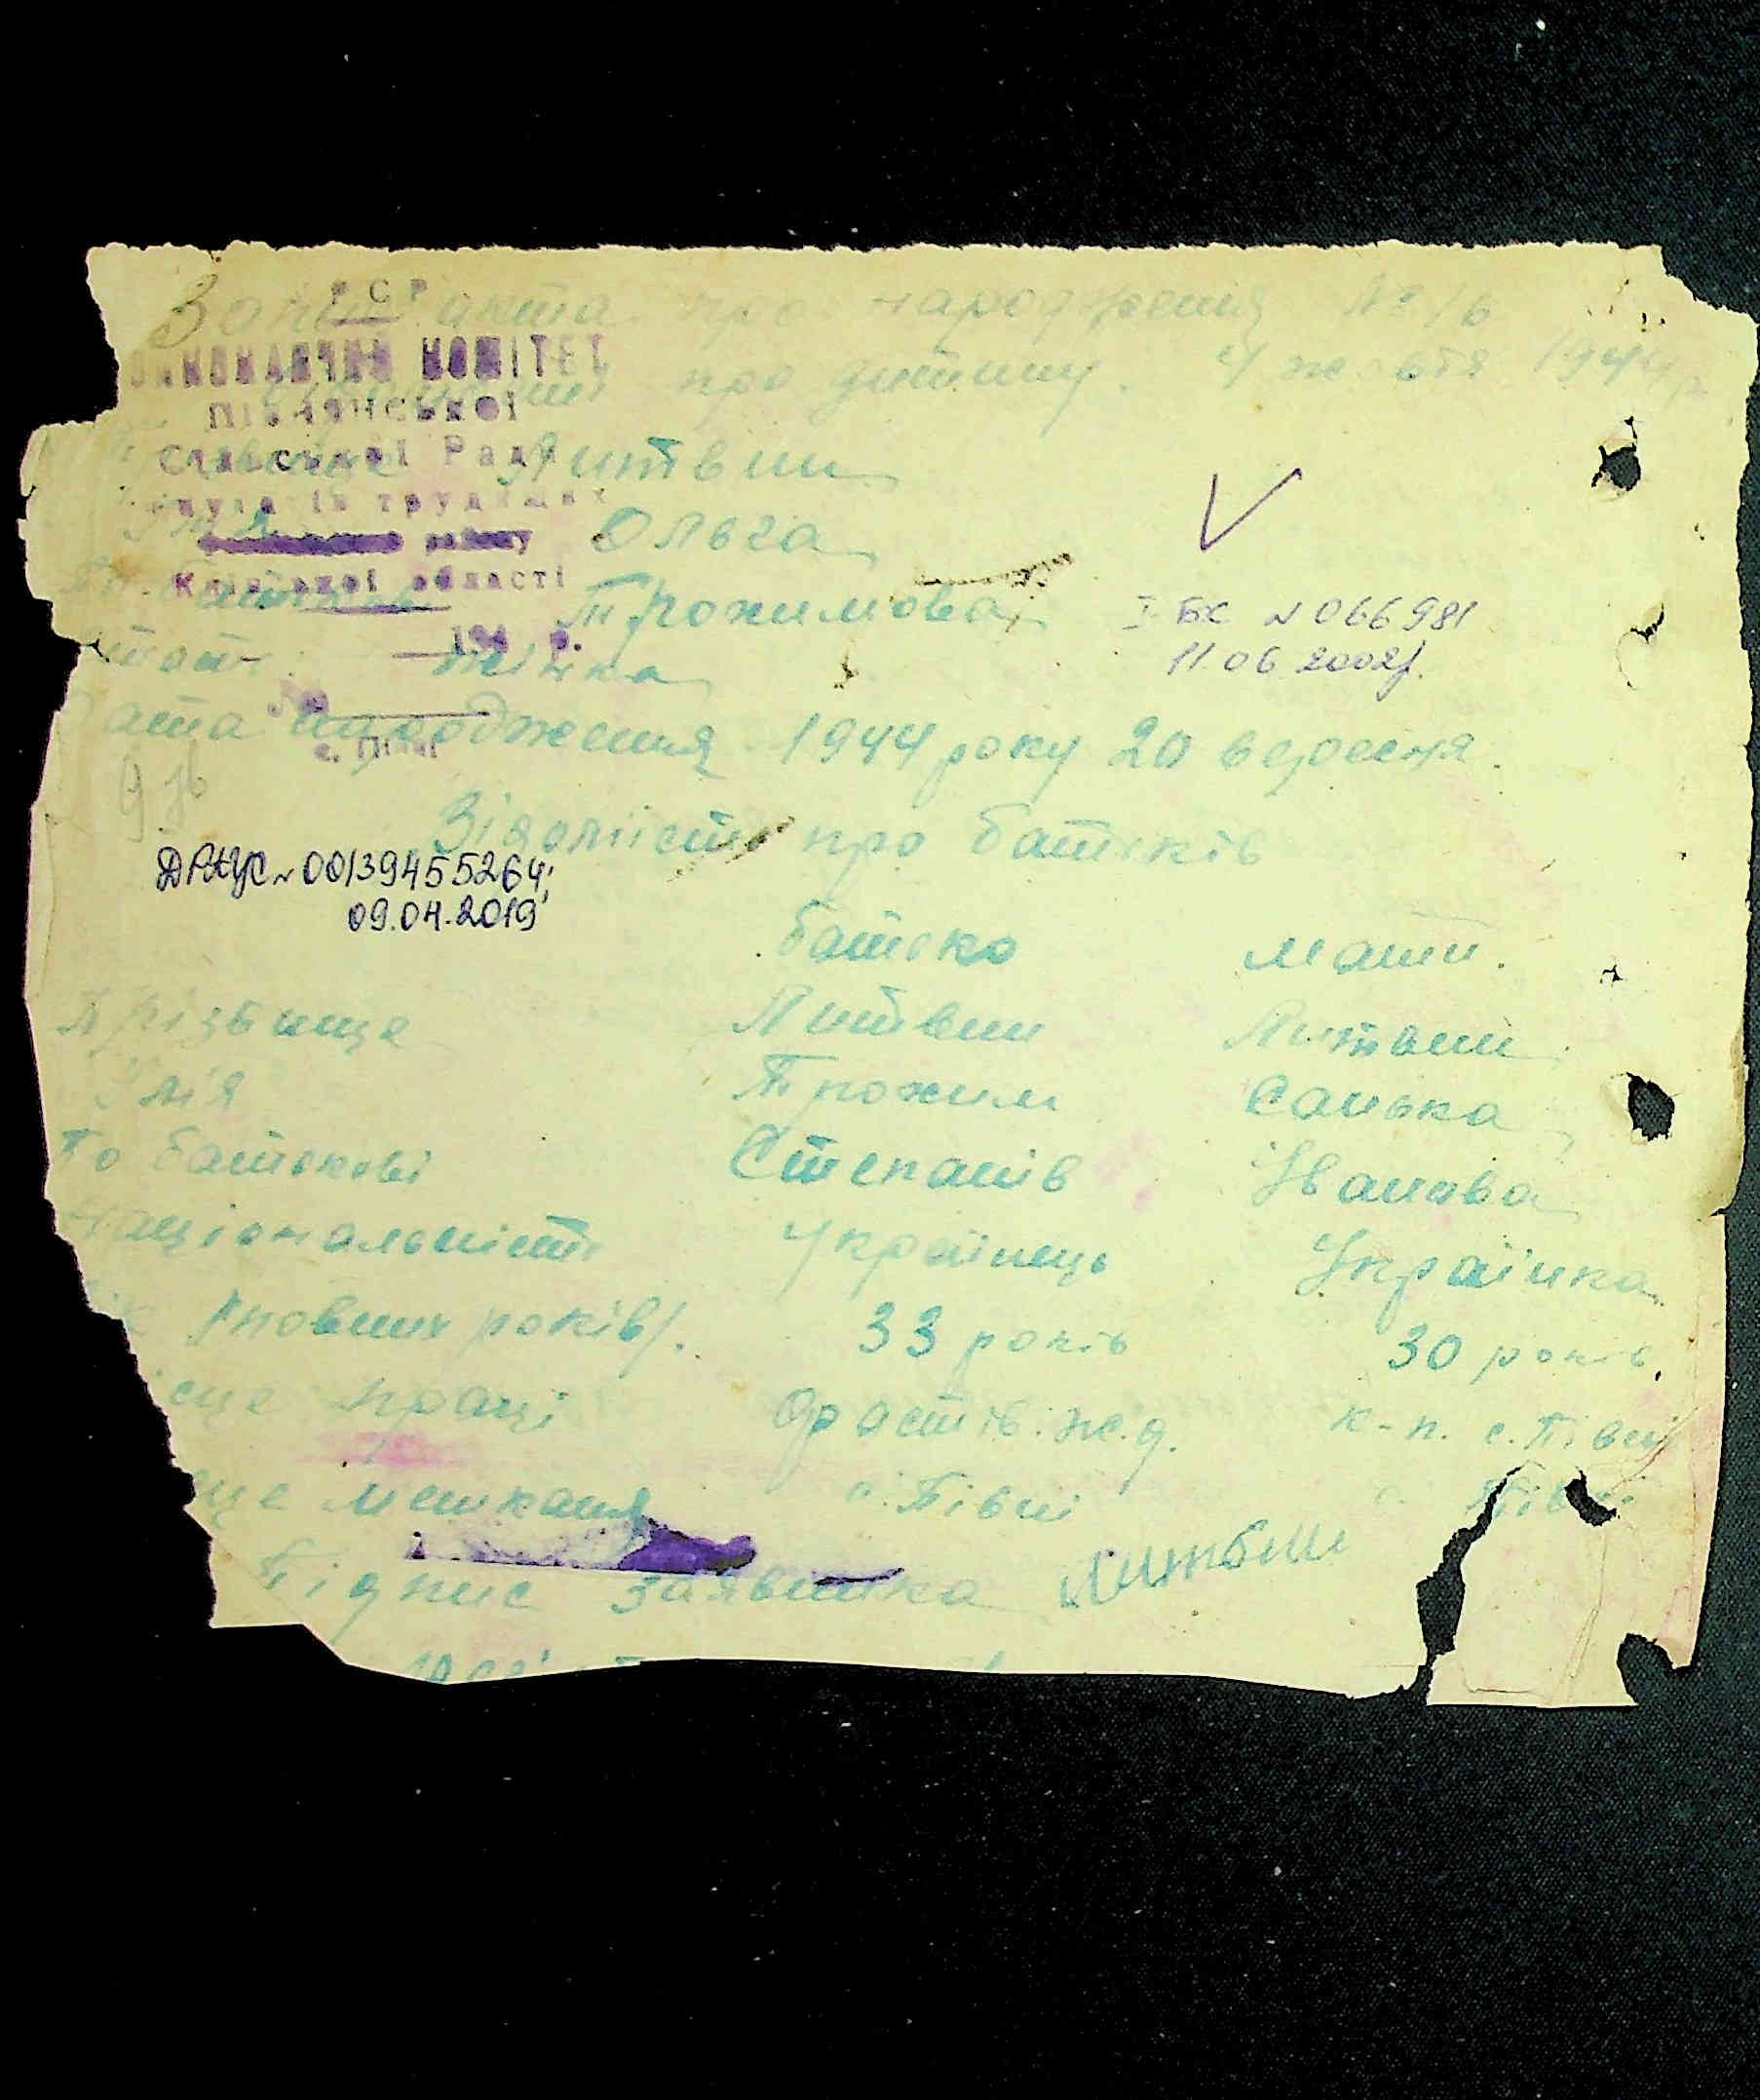 РСР
Запис акта про народження № 16
ВИКОНАВЧИЙ КОМІТЕТ
про дитину. 4 жовтня 1944 р
Півнянської
Сільської Ради
Прізвище Литвин
депутатів трудящих
Ім'я Ольга
району
Київської області
По батькові Трохимова
194 р.
Стать жінка
№
Дата народження 1944 року 20 вересня.
с. Півні
9 зв
Відомість про батьків
ДРАЦС № 00139455264;
09.04.2019
I-БК № 066981
11.06 2002р.
батько мати.
Прізвище Литвин Литвин
Ім'я Трохим Санька
По батькові Степанів Іванова
Національність Українець Українка
Вік /повних років/. 33 років 30 років.
місце праці Фастів. ж.д. к-п. с. Півні
місце мешкання с. Півні с. Півні
Підпис заявника Литвин